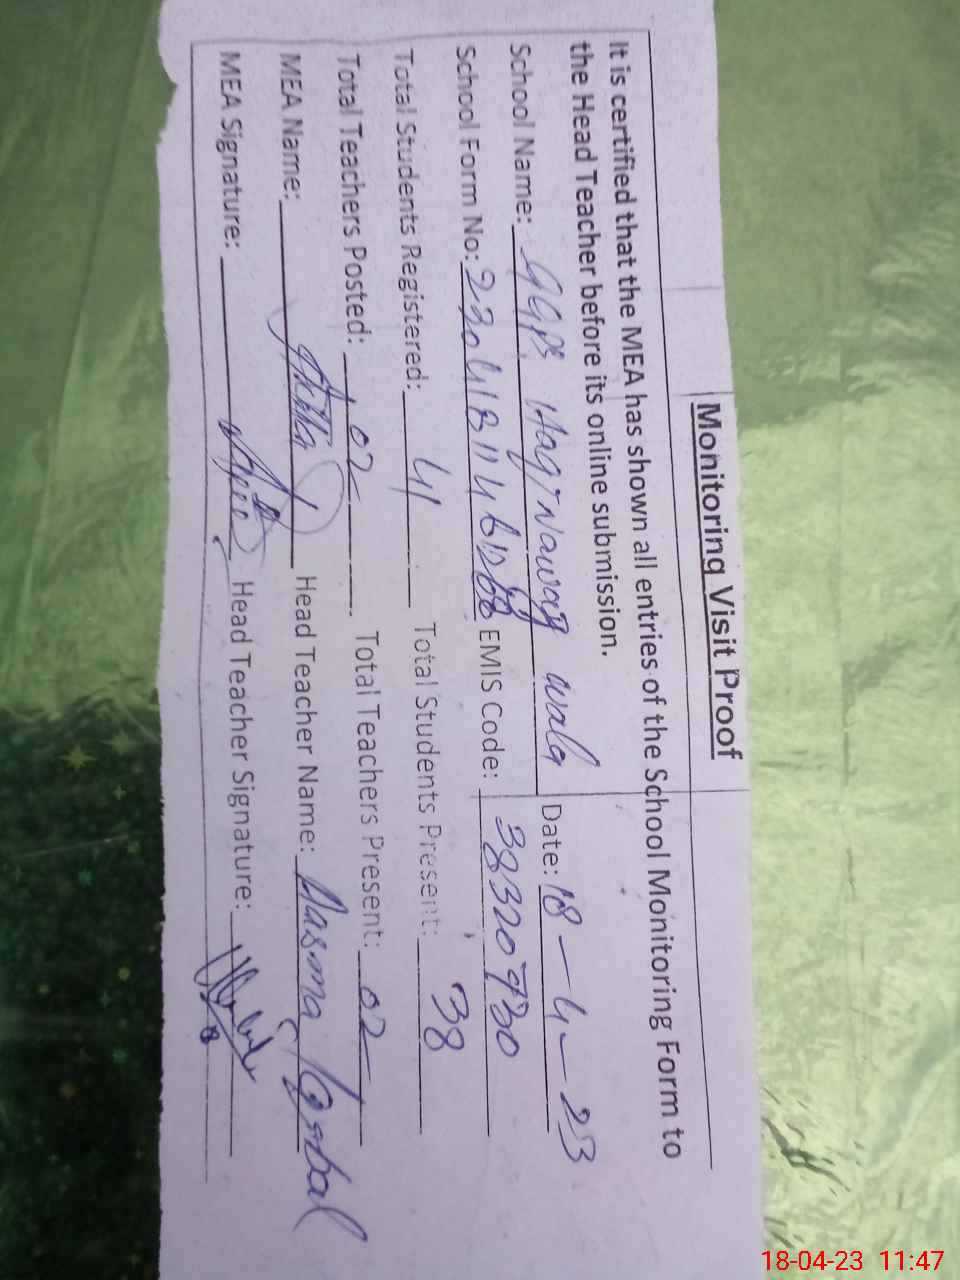 Monitoring Visit Proof
It is certified that the MEA has shown all entries of the School Monitoring Form to
the Head Teacher before its online submission.
School Name: GGPS Haq Nawaz wala Date: 18-4-23
School Form No: EMIS Code: 38320730
Total Students Registered: 41 Total Students Present: 38
Total Teachers Posted: 02 Total Teachers Present: 02
MEA Name: Head Teacher Name: Iqbal
MEA Signature: Head Teacher Signature:
18-04-23 11:47